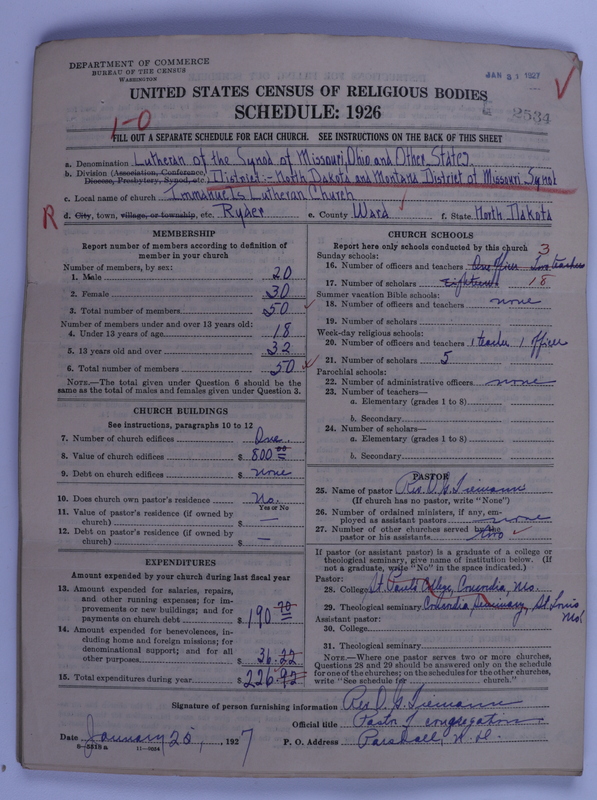 DEPARTMENT OF COMMERCE
BUREAU OF THE CENSUS
WASHINGTON
JAN 31 1927
UNITED STATES CENSUS OF RELIGIOUS BODIES
SCHEDULE: 1926
2534
1-0
FILL OUT A SEPARATE SCHEDULE FOR EACH CHURCH. SEE INSTRUCTIONS ON THE BACK OF THIS SHEET
a. Denomination Lutheran of the Synod of Missouri, Ohio and Other States.
b. Division (Association, Conference, Diocese, Presbytery, Synod, etc.) District:- North Dakota and Montana District of Missouri Synod
c. Local name of church Immanuels Lutheran Church
R d. City, town, village, or township, etc. Ryder e. County Ward f. State North Dakota
MEMBERSHIP
Report number of members according to definition of
member in your church
Number of members, by sex:
1. Male 20
2. Female 30
3. Total number of members 50
Number of members under and over 13 years old:
4. Under 13 years of age 18
5. 13 years old and over 32
6. Total number of members 50
NOTE.—The total given under Question 6 should be the
same as the total of males and females given under Question 3.
CHURCH BUILDINGS
See instructions, paragraphs 10 to 12
7. Number of church edifices One
8. Value of church edifices $ 800.00
9. Debt on church edifices $ none
10. Does church own pastor's residence No.
Yes or No
11. Value of pastor's residence (if owned by
church) $ —
12. Debt on pastor's residence (if owned by
church) $ —
EXPENDITURES
Amount expended by your church during last fiscal year
13. Amount expended for salaries, repairs,
and other running expenses; for im-
provements or new buildings; and for
payments on church debt $ 190.70
14. Amount expended for benevolences, in-
cluding home and foreign missions; for
denominational support; and for all
other purposes $ 36.22
15. Total expenditures during year $ 226.92
CHURCH SCHOOLS
Report here only schools conducted by this church
Sunday schools: 3
16. Number of officers and teachers One officer Two teachers
17. Number of scholars Eighteen 18
Summer vacation Bible schools:
18. Number of officers and teachers none
19. Number of scholars
Week-day religious schools:
20. Number of officers and teachers 1 teacher 1 officer
21. Number of scholars 5
Parochial schools:
22. Number of administrative officers none
23. Number of teachers—
a. Elementary (grades 1 to 8)
b. Secondary
24. Number of scholars—
a. Elementary (grades 1 to 8)
b. Secondary
PASTOR
25. Name of pastor Rev. J. G. Tiemann
(If church has no pastor, write "None")
26. Number of ordained ministers, if any, em-
ployed as assistant pastors none
27. Number of other churches served by the
pastor or his assistants two
If pastor (or assistant pastor) is a graduate of a college or
theological seminary, give name of institution below. (If
not a graduate, write "No" in the space indicated.)
Pastor:
28. College St. Pauls College, Concordia, Mo.
29. Theological seminary Concordia Seminary, St. Louis
Mo.
Assistant pastor:
30. College
31. Theological seminary
NOTE.—Where one pastor serves two or more churches,
Questions 28 and 29 should be answered only on the schedule
for one of the churches; on the schedules for the other churches,
write "See schedule for church."
Signature of person furnishing information Rev. J. G. Tiemann
Official title Pastor of congregation
Date January 25, 1927 P. O. Address Parshall, N. D.
8-5319a 11-9024